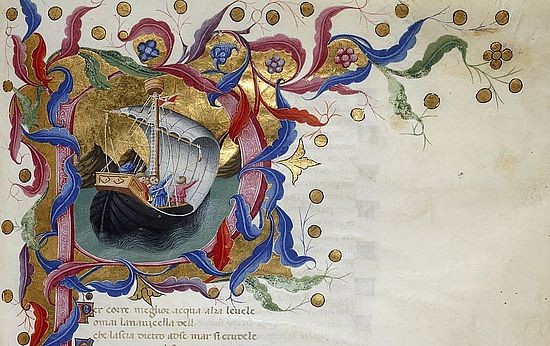 Per corre meglior acqua alza leuele
omai lanauicella dell
che lascia dietro adse mar si crudele